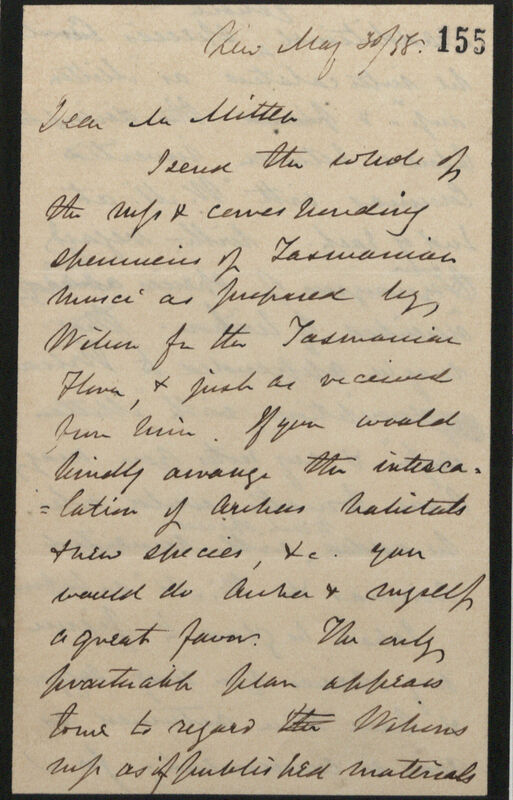 Kew May 30/58. 155
Dear Mr Mitten
I send the whole of
the mss & corresponding
specimens of Tasmanian
Musci as prepared by
Wilson for the Tasmanian
Flora, & just as received
from him. If you would
kindly arrange the interca-
=lation of Archers habitats
& new species, &c. you
would do Archer & myself
a great favor. The only
practicable plan appears
to me to regard the Wilsons
mss as if published materials